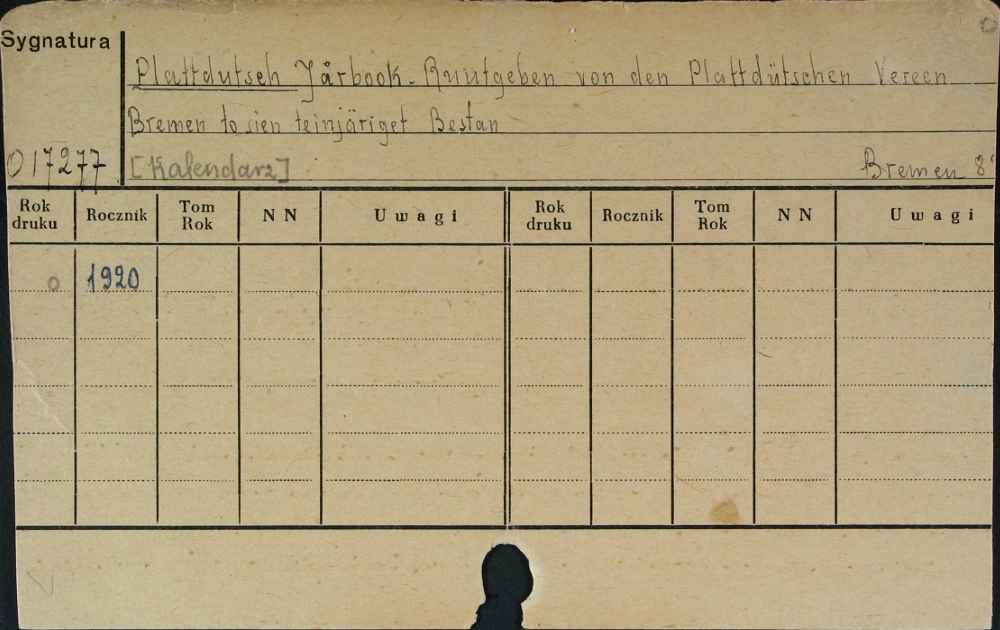 Sygnatura
Plattdutsch Jårbook. Ruutgeben von den Plattdütschen Vereen
Bremen to sien teinjäriget Bestan
017277 [Kalendarz] Bremen 8°
Rok druku Rocznik Tom Rok NN Uwagi Rok druku Rocznik Tom Rok NN Uwagi
0 1920